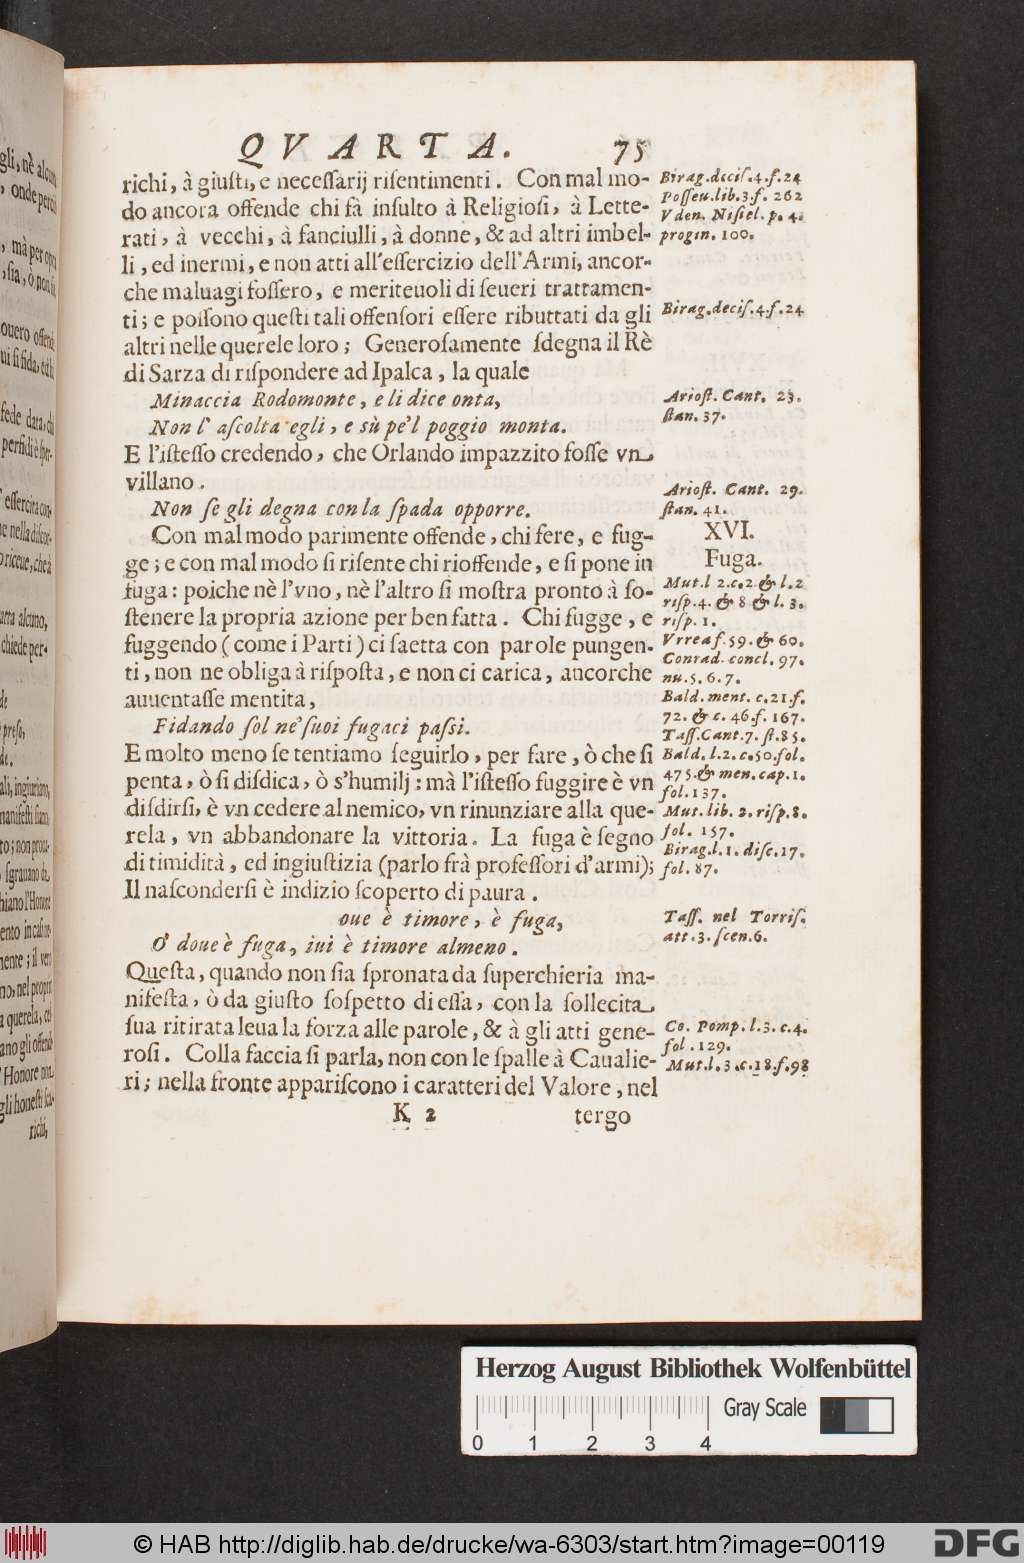 QVARTA. 75
richi, à giuſti, e neceſſarij riſentimenti. Con mal mo-
do ancora offende chi fà inſulto à Religioſi, à Lette-
rati, à vecchi, à fanciulli, à donne, & ad altri imbel-
li, ed inermi, e non atti all'eſſercizio dell'Armi, ancor-
che maluagi foſſero, e meriteuoli di ſeueri trattamen-
ti; e poſſono queſti tali offenſori eſſere ributtati da gli
altri nelle querele loro; Generoſamente ſdegna il Rè
di Sarza di riſpondere ad Ipalca, la quale
Minaccia Rodomonte, e li dice onta,
Non l' aſcolta egli, e sù pe'l poggio monta.
E l'iſteſſo credendo, che Orlando impazzito foſſe vn
villano.
Non ſe gli degna con la ſpada opporre.
Con mal modo parimente offende, chi fere, e fug-
ge; e con mal modo ſi riſente chi rioffende, e ſi pone in
fuga: poiche nè l'vno, nè l'altro ſi moſtra pronto à ſo-
ſtenere la propria azione per ben fatta. Chi fugge, e
fuggendo (come i Parti) ci ſaetta con parole pungen-
ti, non ne obliga à riſpoſta, e non ci carica, ancorche
auuentaſſe mentita,
Fidando ſol ne' ſuoi fugaci paſſi.
E molto meno ſe tentiamo ſeguirlo, per fare, ò che ſi
penta, ò ſi diſdica, ò s'humilj: mà l'iſteſſo fuggire è vn
diſdirſi, è vn cedere al nemico, vn rinunziare alla que-
rela, vn abbandonare la vittoria. La fuga è ſegno
di timidità, ed ingiuſtizia (parlo frà profeſſori d'armi);
Il naſconderſi è indizio ſcoperto di paura.
oue è timore, è fuga,
O' doue è fuga, iui è timore almeno.
Queſta, quando non ſia ſpronata da ſuperchieria ma-
nifeſta, ò da giuſto ſoſpetto di eſſa, con la ſollecita
ſua ritirata leua la forza alle parole, & à gli atti gene-
roſi. Colla faccia ſi parla, non con le ſpalle à Caualie-
ri; nella fronte appariſcono i caratteri del Valore, nel
K 2 tergo
Birag.deciſ.4.f.24
Poſſeu.lib.3.f. 262
Vden. Niſiel. p. 4.
progin. 100.
Birag.deciſ.4.f.24
Arioſt. Cant. 23.
ſtan. 37.
Arioſt. Cant. 29.
ſtan. 41.
XVI.
Fuga.
Mut.l 2.c.2.& l.2
riſp.4. & 8 & l. 3.
riſp. 1.
Vrrea f.59.& 60.
Conrad. concl. 97.
nu.5. 6. 7.
Bald. ment. c.21.f.
72. & c. 46.f. 167.
Taſſ.Cant.7. ſt.85.
Bald. l.2. c.50.fol.
475.& men.cap.1.
fol.137.
Mut.lib. 2.riſp.8.
fol. 157.
Birag.l.1. diſc.17.
fol. 87.
Taſſ. nel Torriſ.
att.3. ſcen.6.
Co. Pomp. l.3. c.4.
fol. 129.
Mut.l.3.c.18.f.98
gli, nè alcun
, onde perch
, mà per opra
ouero offende
fede data, chi
ne nella diſcor-
chiede per-
preſo,
richi,
Herzog August Bibliothek Wolfenbüttel
Gray Scale
0 1 2 3 4
© HAB http://diglib.hab.de/drucke/wa-6303/start.htm?image=00119
DFG